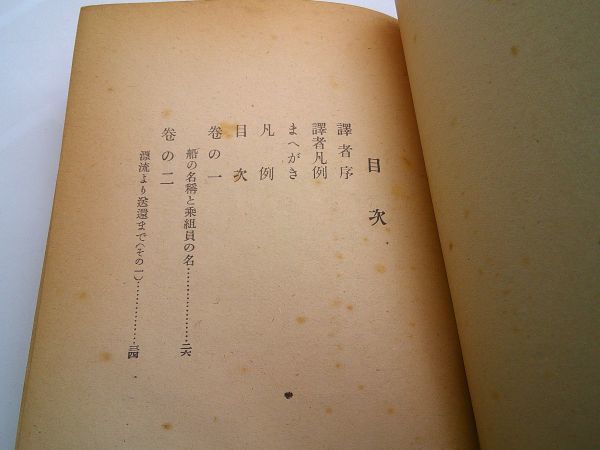 目次
譯者序
譯者凡例
まへがき
凡例
目次
卷の一
船の名稱と乘組員の名…………………二六
卷の二
漂流より送還まで（その一）……………三四